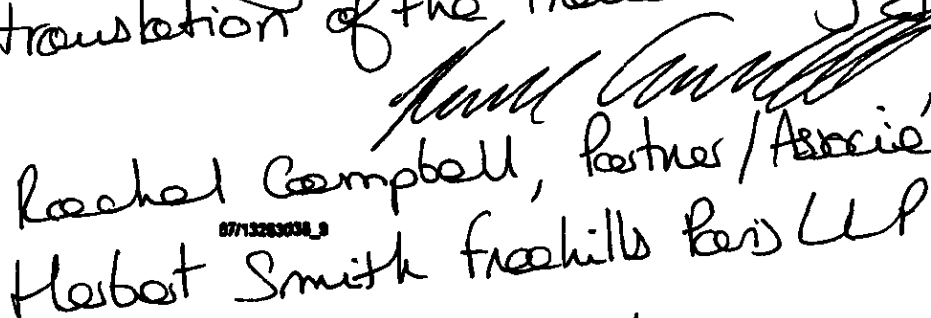 translation of the
Rachel Campbell, Partner/Associé
07/13263036_9
Herbert Smith Freehills Paris LLP